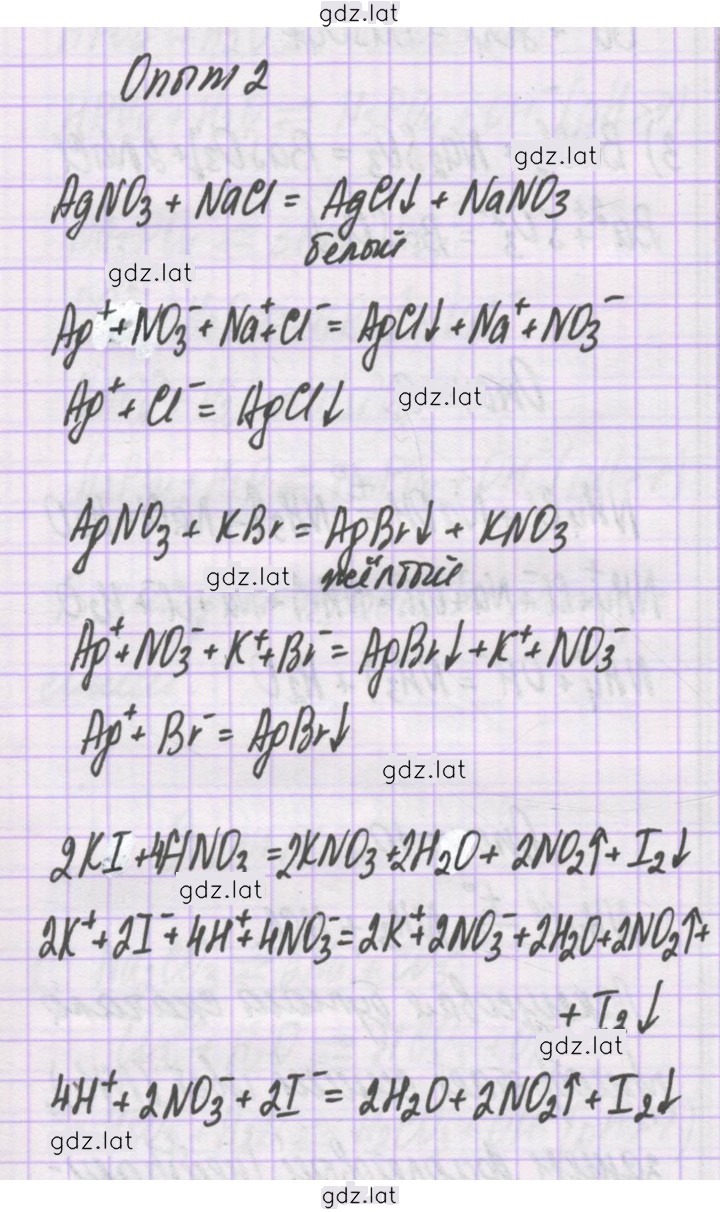 gdz.lat
Опыт 2
gdz.lat
AgNO3 + NaCl = AgCl↓ + NaNO3
белый
gdz.lat
Ag⁺ + NO3⁻ + Na⁺ + Cl⁻ = AgCl↓ + Na⁺ + NO3⁻
Ag⁺ + Cl⁻ = AgCl↓
gdz.lat
AgNO3 + KBr = AgBr↓ + KNO3
gdz.lat жёлтый
Ag⁺ + NO3⁻ + K⁺ + Br⁻ = AgBr↓ + K⁺ + NO3⁻
Ag⁺ + Br⁻ = AgBr↓
gdz.lat
2KI + 4HNO3 = 2KNO3 + 2H2O + 2NO2↑ + I2↓
gdz.lat
2K⁺ + 2I⁻ + 4H⁺ + 4NO3⁻ = 2K⁺ + 2NO3⁻ + 2H2O + 2NO2↑ +
+ I2↓
gdz.lat
4H⁺ + 2NO3⁻ + 2I⁻ = 2H2O + 2NO2↑ + I2↓
gdz.lat
gdz.lat